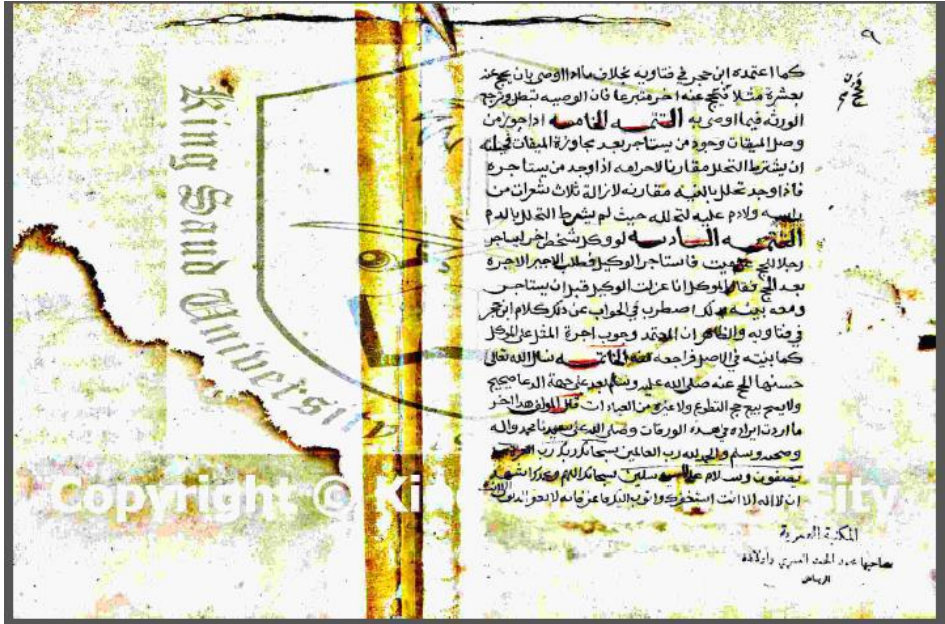 ٩
كما اعتمده ابن حجر في فتاويه بخلاف ما اذا اوصى بان يحج عنه
بعشرة مثلا فحج عنه اخر متبرعا فان الوصيه تبطل وترجع
الورثه فيما اوصى به التتمــه الخامسه اذا جوز من
وصل الميقات وجود من يستاجر بعد مجاوزة الميقات فحيلته
ان يشترط التحلل مقارنا لاحرامه اذا وجد من يستاجره
فاذا وجد تحلل بالنيه مقارنه لازالة ثلاث شعرات من
راسه ولا دم عليه لتحلله حيث لم يشرط التحلل بالدم
التتمــه السادســه لو وكل شخص اخر ليستاجر
رجلا للحج فاستاجر الوكيل فطلب الاجير الاجره
بعد الحج فقال الموكل انا عزلت الوكيل قبل ان يستاجر
ومعه بينه بذلك اضطرب في الجواب عن ذلك كلام ابن حجر
في فتاويه والظاهر ان المعتمد وجوب اجرة المثل على الموكل
كما بينته في الاصل فراجعه الخاتمــه نسال الله تعالى
حسنها الحج عنه صلى الله عليه وسلم على جهة الدعا صحيح
ولا يصح بيع حج التطوع ولا غيره من العبادات قال المولف هذا اخر
ما اردت ايراده في هذه الورقات وصلى الله على سيدنا محمد واله
وصحبه وسلم والحمد لله رب العالمين سبحان ربك رب العزة عما
يصفون وسلام على المرسلين سبحانك اللهم وبحمدك اشهد
ان لا اله الا انت استغفرك واتوب اليك فاغفر فانه لا يغفر الذنوب
الا انت
المكتبة العمرية
صاحبها محمد الحمد العمري واولاده
الرياض
King Saud Universi
Copyright © Ki
ity